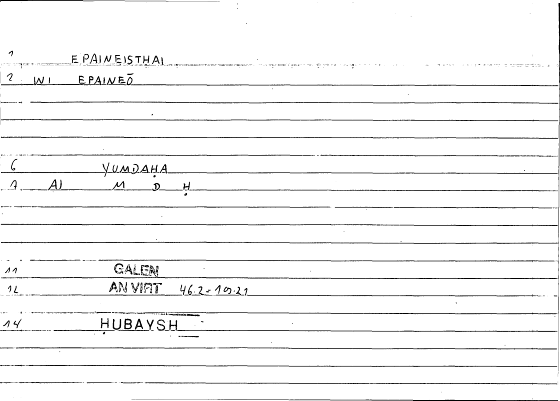 1 EPAINEISTHAI
2 WI EPAINEŌ
6 YUMDAḤA
7 AI M D Ḥ
11 GALEN
12 AN VIRT 46.2 = 19.21
14 ḤUBAYSH